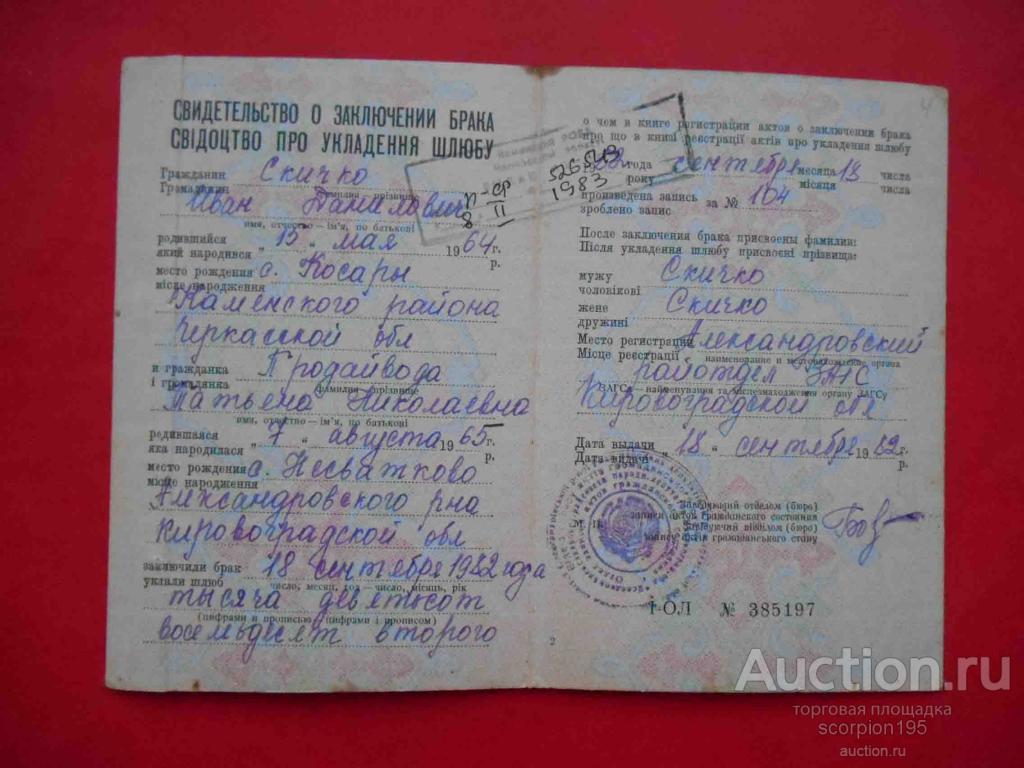 СВИДЕТЕЛЬСТВО О ЗАКЛЮЧЕНИИ БРАКА
СВІДОЦТВО ПРО УКЛАДЕННЯ ШЛЮБУ
Гражданин Скичко
Громадянин фамилия прізвище
Иван Данилович
имя, отчество — ім'я, по батькові
родившийся „ 15 „ мая 1964 г.
який народився р.
место рождения с. Косары
місце народження
Каменского района
Черкасской обл
и гражданка Продайвода
і громадянка фамилия прізвище
Татьяна Николаевна
имя, отчество — ім'я, по батькові
родившаяся „ 7 „ августа 1965 г.
яка народилася р.
место рождения с. Несватково
місце народження
Александровского р-на
Кировоградской обл
заключили брак 18 сентября 1982 года
уклали шлюб число, месяц, год — число, місяць, рік
тысяча девятьсот
(цифрами и прописью) (цифрами і прописом)
восемьдесят второго
II
8
526543
1983
о чем в книге регистрации актов о заключении брака
про що в книзі реєстрації актів про укладення шлюбу
года сентября месяца 18 числа
року місяця числа
произведена запись за № 104
зроблено запис
После заключения брака присвоены фамилии:
Після укладення шлюбу присвоєні прізвища:
мужу Скичко
чоловікові
жене Скичко
дружині
Место регистрации Александровский
Місце реєстрації наименование и местонахождение органа
райотдел ЗАГС
ЗАГСа — найменування та місцезнаходження органу ЗАГСу
Кировоградской обл
Дата выдачи „ 18 „ сентября 1982 г.
Дата видачі р.
М. П.
Заведующий отделом (бюро)
записи актов гражданского состояния
Завідуючий відділом (бюро)
запису актів громадянського стану
I-ОЛ № 385197
2
4
Auction.ru
торговая площадка
scorpion195
auction.ru